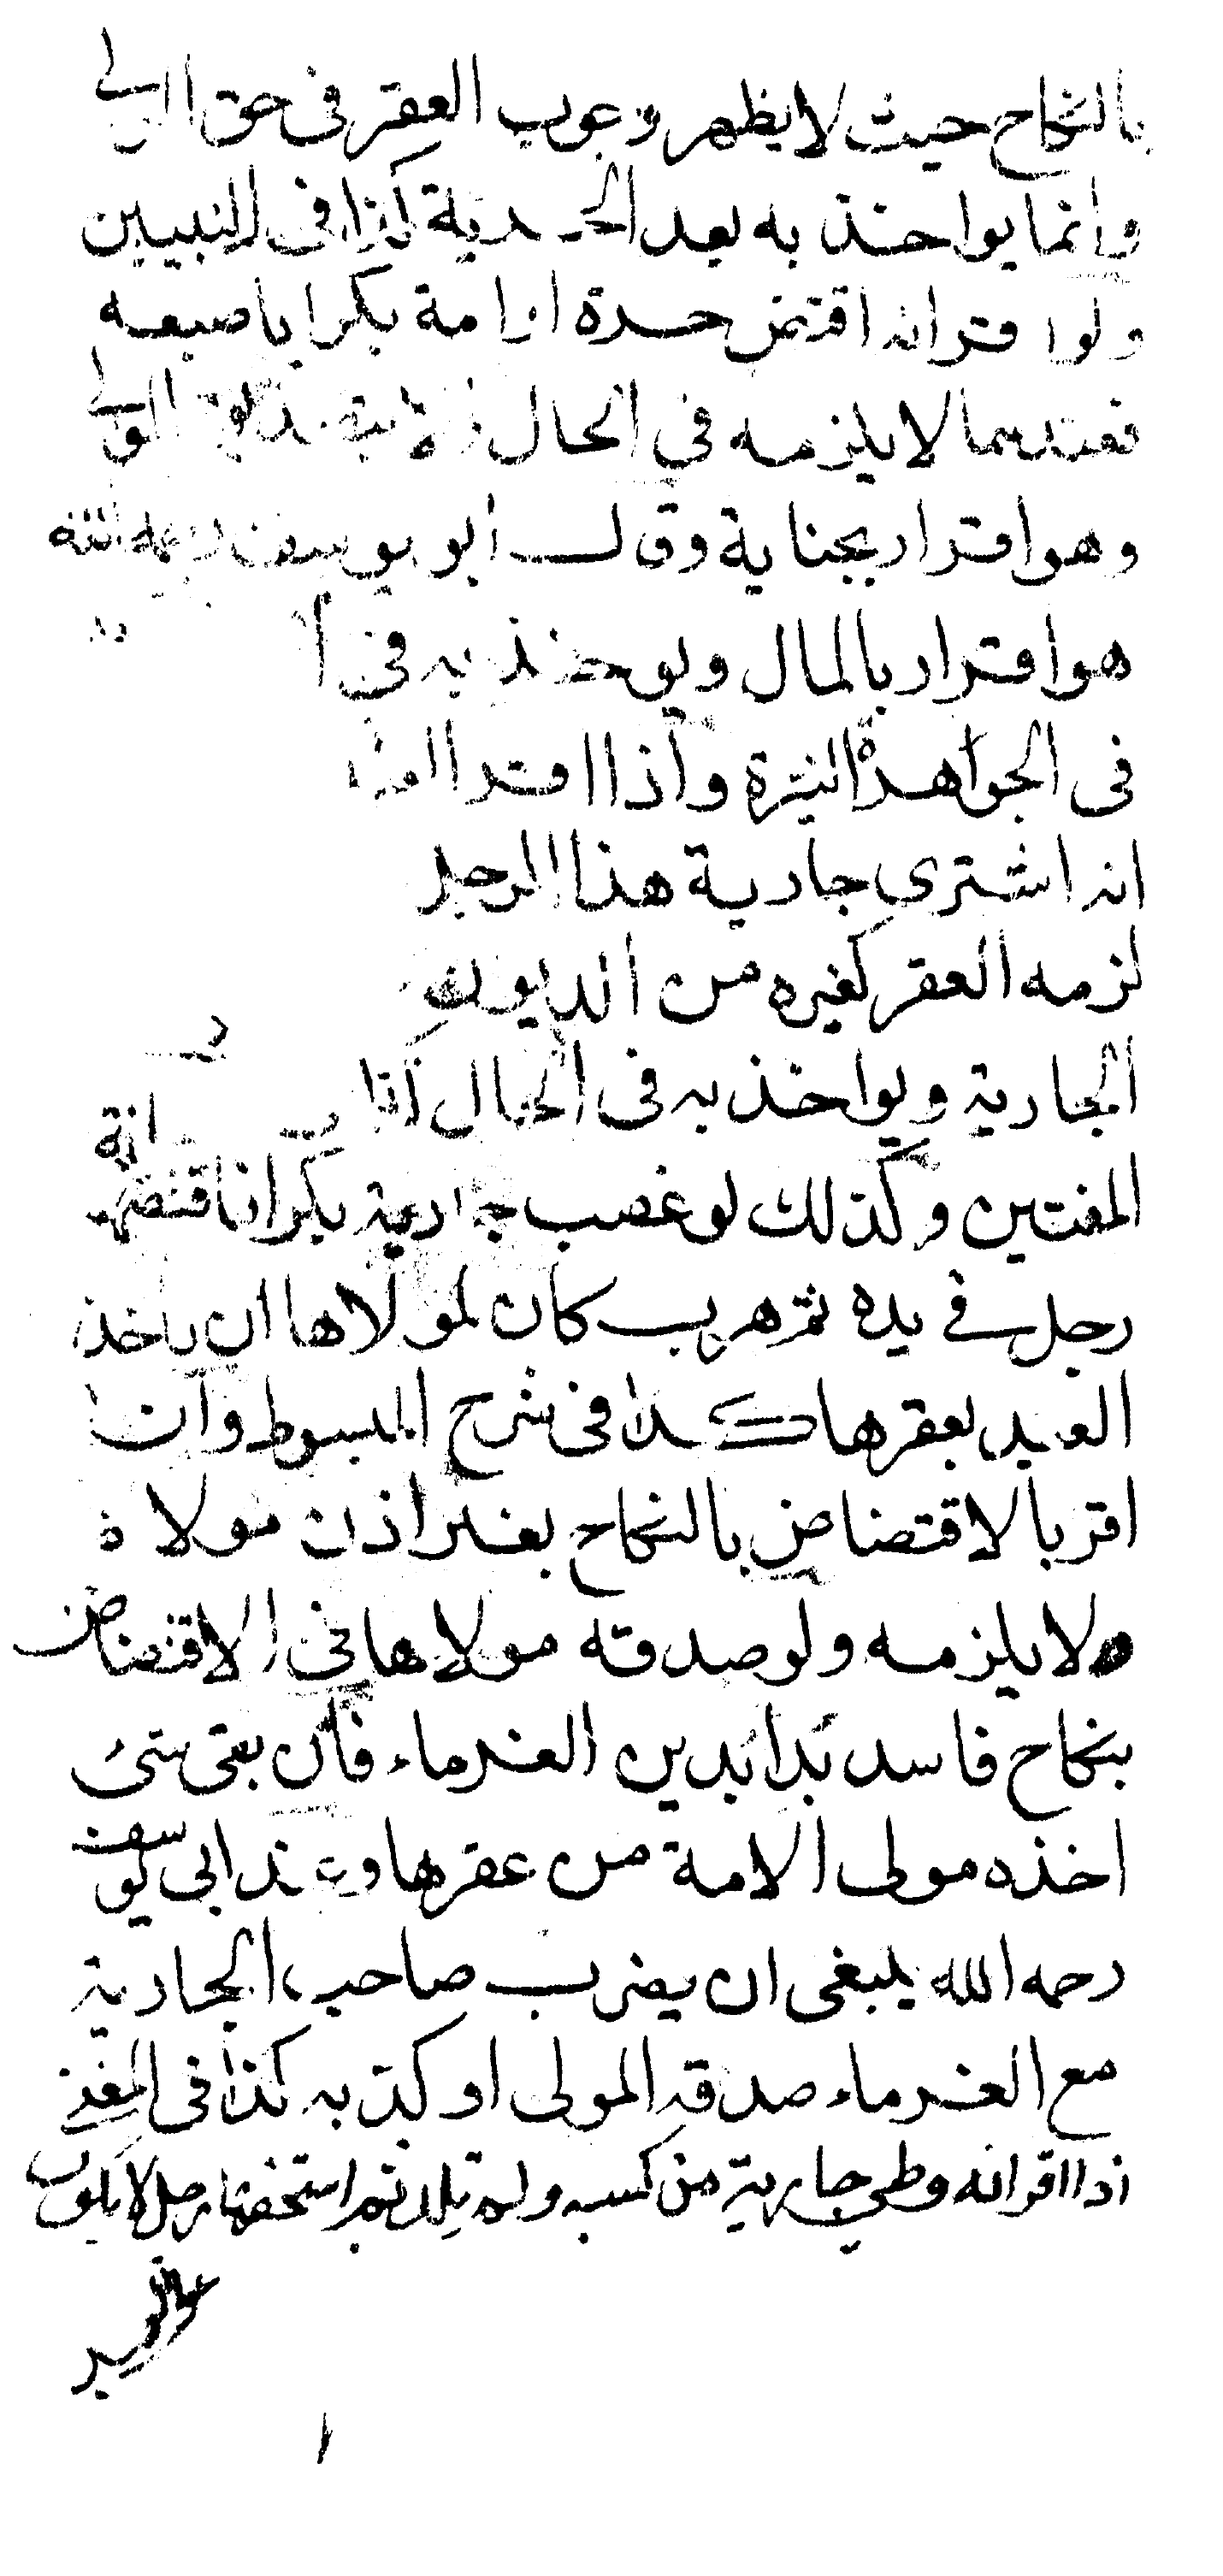 بالنكاح حيث لا يظهر وجوب العقر فى حق المولى
وانما يواخذ به بعد الحرية كذا فى التبيين
ولو اقر انه اقتض حرة او امة بكرا باصبعه
فعندهما لا يلزمه فى الحال الا بتصديق المولى
وهو اقرار بجناية وقال ابو يوسف رحمه الله
هو اقرار بالمال ويوخذ به فى
فى الجواهرة النيرة واذا اقر
انه اشترى جارية هذا الرجل
لزمه العقر كغيره من الديون
الجارية ويواخذ به فى الحال
المفتين وكذلك لو غصب جارية بكرا فاقتضها
رجل فى يده ثم هرب كان لمولاها ان ياخذ
العبد بعقرها كذا فى شرح المبسوط وان
اقر بالاقتضاض بالنكاح بغير اذن مولاه
لا يلزمه ولو صدقه مولاها فى الاقتضاض
بنكاح فاسد بدا بدين الغرماء فان بقى شئ
اخذه مولى الامة من عقرها وعند ابى يوسف
رحمه الله ينبغى ان يضرب صاحب الجارية
مع الغرماء صدقه المولى او كذبه كذا فى المغنى
اذا اقر انه وطى جارية من كسبه ولم تلد ثم استحقها رجل لا يكون